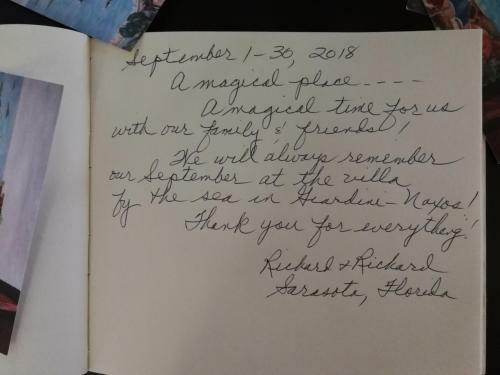 September 1-30, 2018
A magical place----
A magical time for us
with our family & friends!
We will always remember
our September at the villa
by the sea in Giardini-Naxos!
Thank you for everything!
Richard & Rickard
Sarasota, Florida